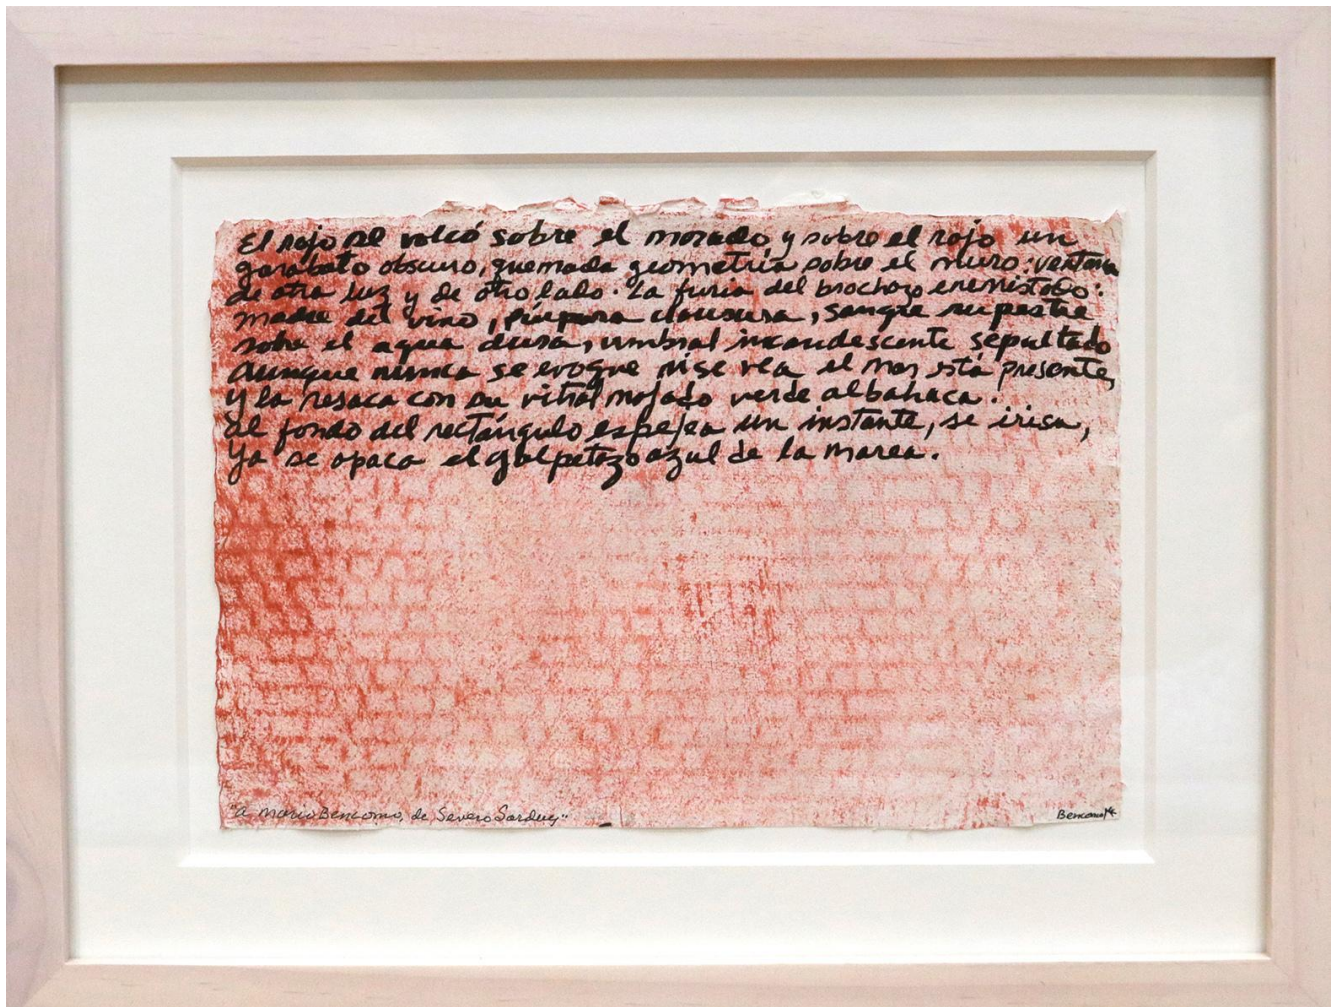 El rojo se volcó sobre el morado y sobre el rojo un
garabato obscuro, quemada geometría sobre el muro: ventana
de otra luz y de otro lado. La furia del brochazo enemistado:
madre del vino, púrpura clausura, sangre rupestre
sobre el agua dura, umbral incandescente sepultado
aunque nunca se evoque ni se vea el mar está presente,
y la resaca con su vitral mojado verde albahaca.
al fondo del rectángulo espejea un instante, se irisa,
ya se opaca el golpetazo azul de la marea.
"a Mario Bencomo, de Severo Sarduy"
Bencomo